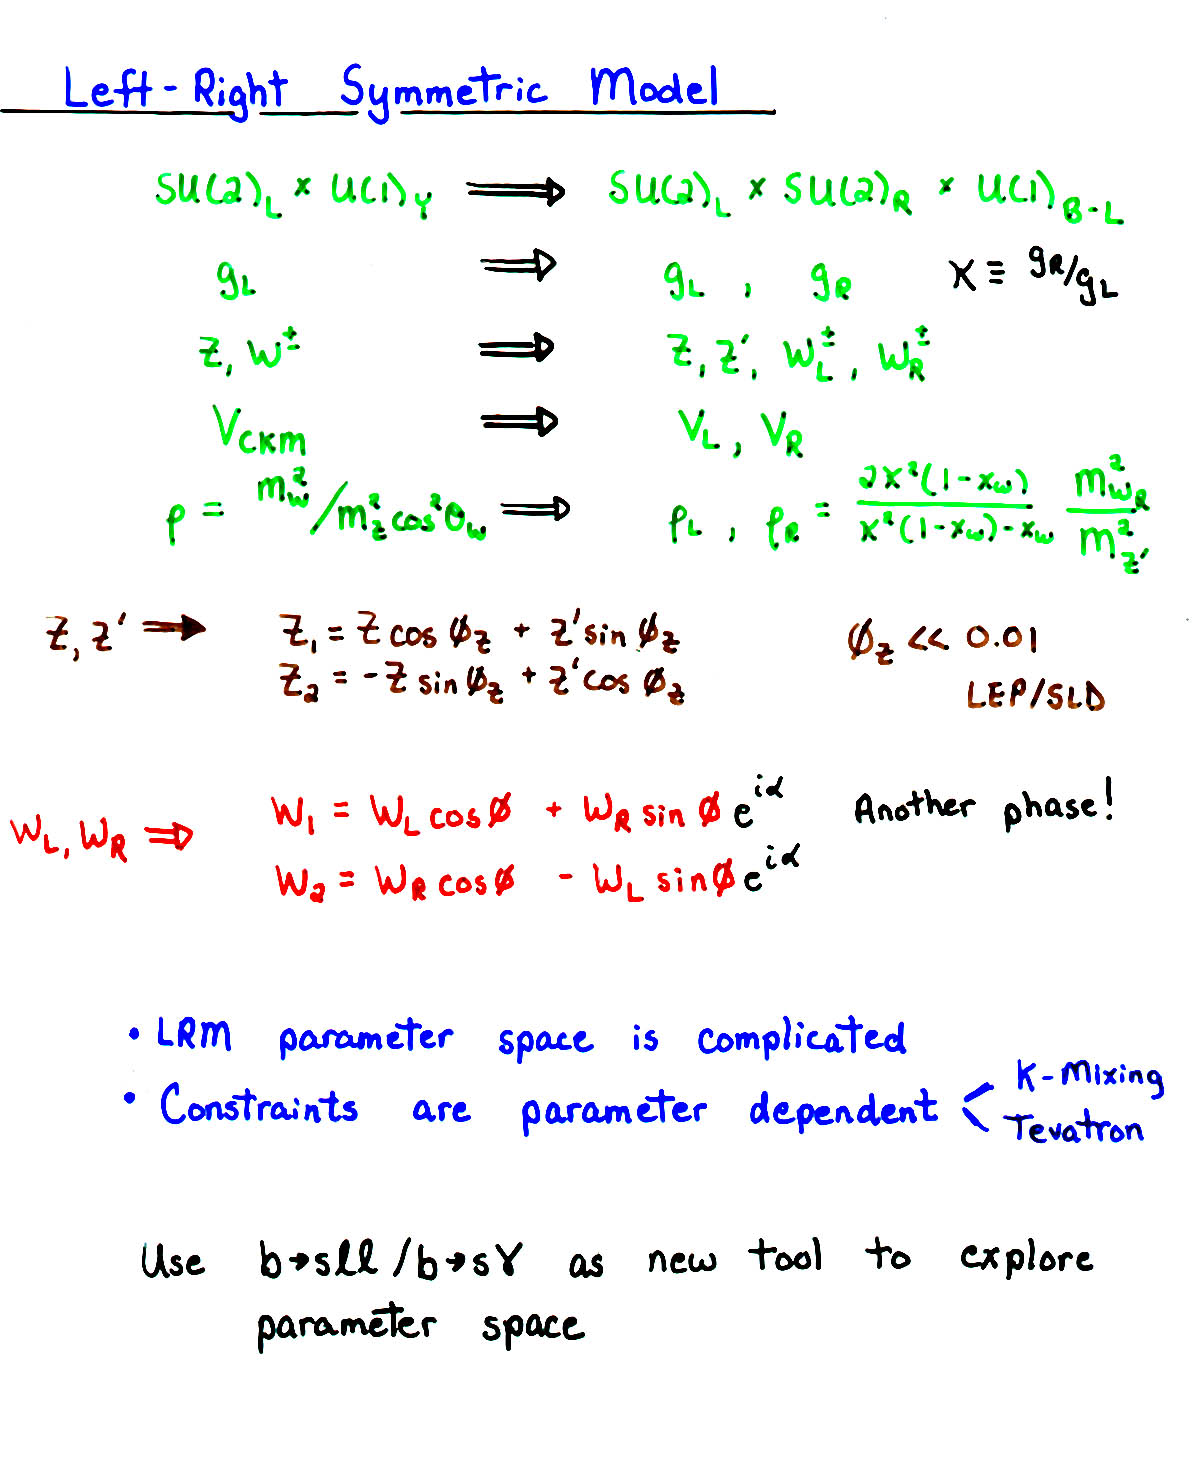 Left-Right Symmetric Model
SU(2)_L × U(1)_Y ⟹ SU(2)_L × SU(2)_R × U(1)_{B-L}
g_L ⟹ g_L , g_R    κ ≡ g_R/g_L
Z, W^± ⟹ Z, Z', W_L^±, W_R^±
V_{CKM} ⟹ V_L, V_R
ρ = m_W^2/m_Z^2 cos^2θ_w ⟹ ρ_L, ρ_R = \frac{2κ^2(1-x_w)}{κ^2(1-x_w)-x_w} \frac{m^2_{W_R}}{m^2_{Z'}}
Z, Z' ⟹ Z_1 = Z cos ϕ_Z + Z' sin ϕ_Z    ϕ_Z << 0.01
Z_2 = -Z sin ϕ_Z + Z' cos ϕ_Z    LEP/SLD
W_L, W_R ⟹ W_1 = W_L cos ϕ + W_R sin ϕ e^{iα}    Another phase!
W_2 = W_R cos ϕ - W_L sin ϕ e^{iα}
• LRM parameter space is complicated
• Constraints are parameter dependent < K-Mixing
Tevatron
Use b→sll/b→sγ as new tool to explore
parameter space